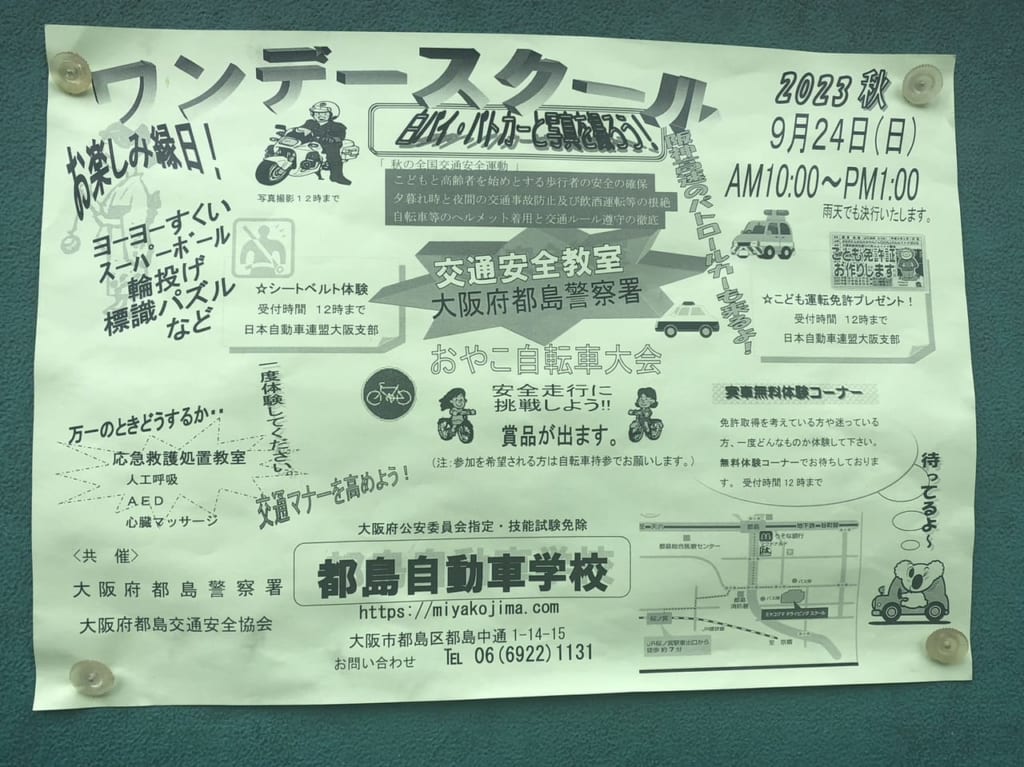 ワンデースクール
2023 秋
9月24日(日)
AM10:00～PM1:00
雨天でも決行いたします。
白バイ・パトカーと写真を撮ろう！
お楽しみ縁日！
写真撮影12時まで
「 秋の全国交通安全運動 」
こどもと高齢者を始めとする歩行者の安全の確保
夕暮れ時と夜間の交通事故防止及び飲酒運転等の根絶
自転車等のヘルメット着用と交通ルール遵守の徹底
ヨーヨーすくい
スーパーボール
輪投げ
標識パズル
など
阪神高速のパトロールカーも来るよ！
交通安全教室
大阪府都島警察署
☆シートベルト体験
受付時間 12時まで
日本自動車連盟大阪支部
こども免許証
お作りします
☆こども運転免許プレゼント！
受付時間 12時まで
日本自動車連盟大阪支部
おやこ自転車大会
安全走行に
挑戦しよう!!
賞品が出ます。
(注:参加を希望される方は自転車持参でお願いします。)
一度体験してください。
実車無料体験コーナー
免許取得を考えている方や迷っている
方、一度どんなものか体験して下さい。
無料体験コーナーでお待ちしておりま
す。 受付時間12時まで
待ってるよ～
万一のときどうするか・・
応急救護処置教室
人工呼吸
AED
心臓マッサージ
交通マナーを高めよう！
〈共 催〉
大阪府都島警察署
大阪府都島交通安全協会
大阪府公安委員会指定・技能試験免除
都島自動車学校
https://miyakojima.com
大阪市都島区都島中通1-14-15
お問い合わせ TEL 06(6922)1131
至 天六
都島
地下鉄 谷町線
都島総合医療センター
りそな銀行
マクドナルド
バス停
バス停
都島
消防署
ミヤコジマ ドライビング スクール
桜ノ宮
JR環状線
至 京橋
JR桜ノ宮駅東出口から
徒歩 約7分